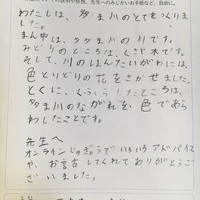 わたしは、多ま川のとてをつくりま
した。
まん中は、多ま川の川です。
みどりのところは、くさや木です。
そして、川のはんたいがわには、
色とりどりの花をさかせました。
とくに、くふうしたところは、
多ま川のながれを色であら
わしたことです。
先生へ
オンラインじゅぎょうでいろいろアドバイス
や、お言古してくれてありがとうご
ざいました。